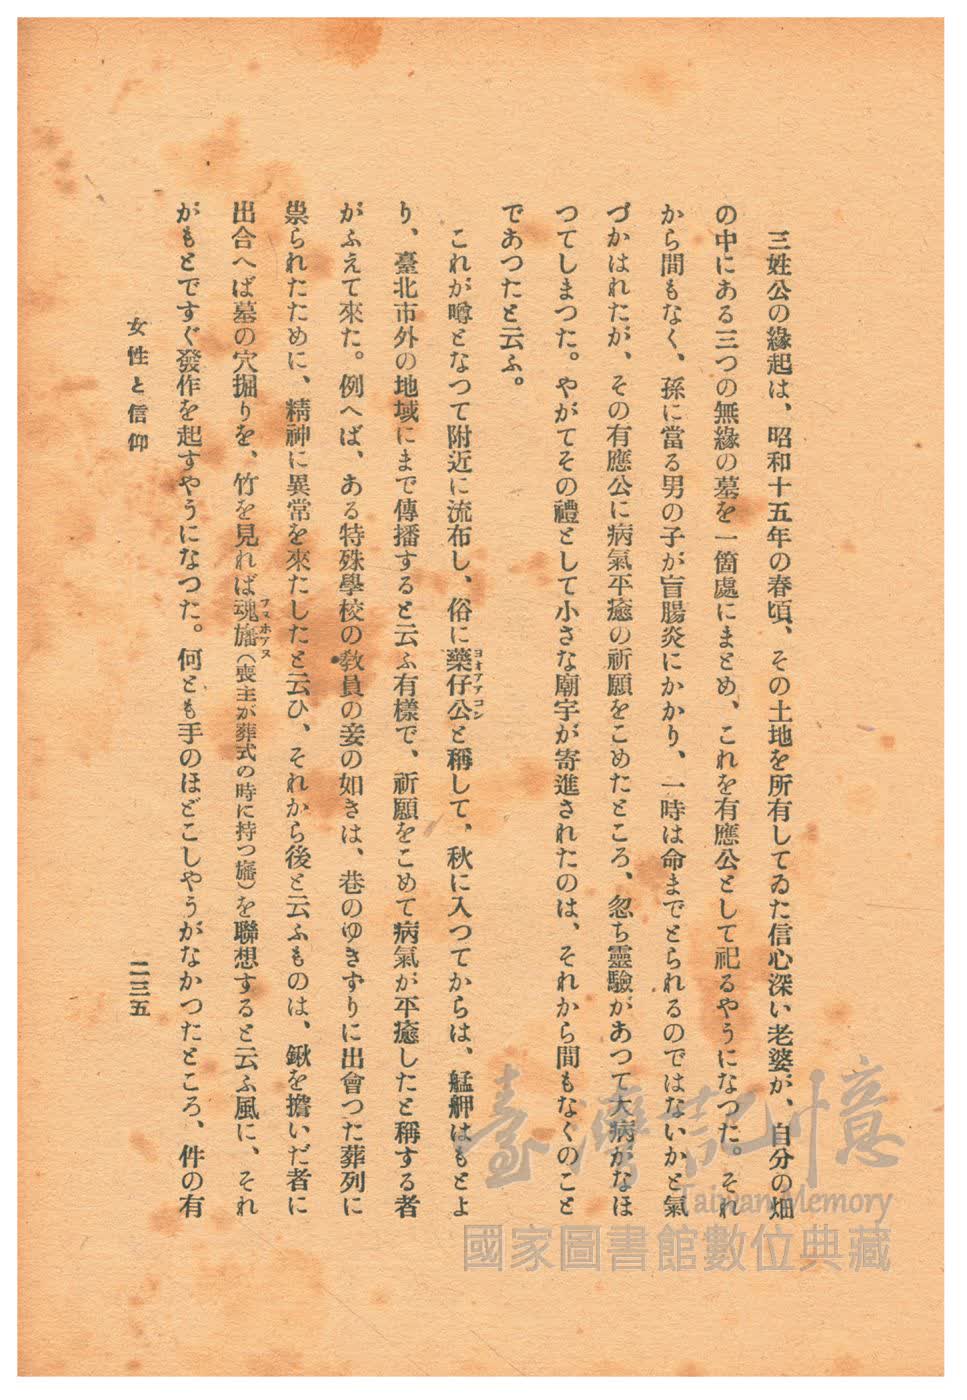 三姓公の緣起は、昭和十五年の春頃、その土地を所有してゐた信心深い老婆が、自分の畑
の中にある三つの無緣の墓を一箇處にまとめ、これを有應公として祀るやうになつた。それ
から間もなく、孫に當る男の子が盲腸炎にかかり、一時は命までとられるのではないかと氣
づかはれたが、その有應公に病氣平癒の祈願をこめたところ、忽ち靈驗があつて大病がなほ
つてしまつた。やがてその禮として小さな廟宇が寄進されたのは、それから間もなくのこと
であつたと云ふ。
これが噂となつて附近に流布し、俗に藥仔公と稱して、秋に入つてからは、艋舺はもとよ
ヨオアアコン
り、臺北市外の地域にまで傳播すると云ふ有樣で、祈願をこめて病氣が平癒したと稱する者
がふえて來た。例へば、ある特殊學校の敎員の妾の如きは、巷のゆきずりに出會つた葬列に
祟られたために、精神に異常を來たしたと云ひ、それから後と云ふものは、鍬を擔いだ者に
出合へば墓の穴掘りを、竹を見れば魂旛（喪主が葬式の時に持つ旛）を聯想すると云ふ風に、それ
がもとですぐ發作を起すやうになつた。何とも手のほどこしやうがなかつたところ、件の有
女性と信仰
二三五
臺灣記憶
Taiwan Memory
國家圖書館數位典藏